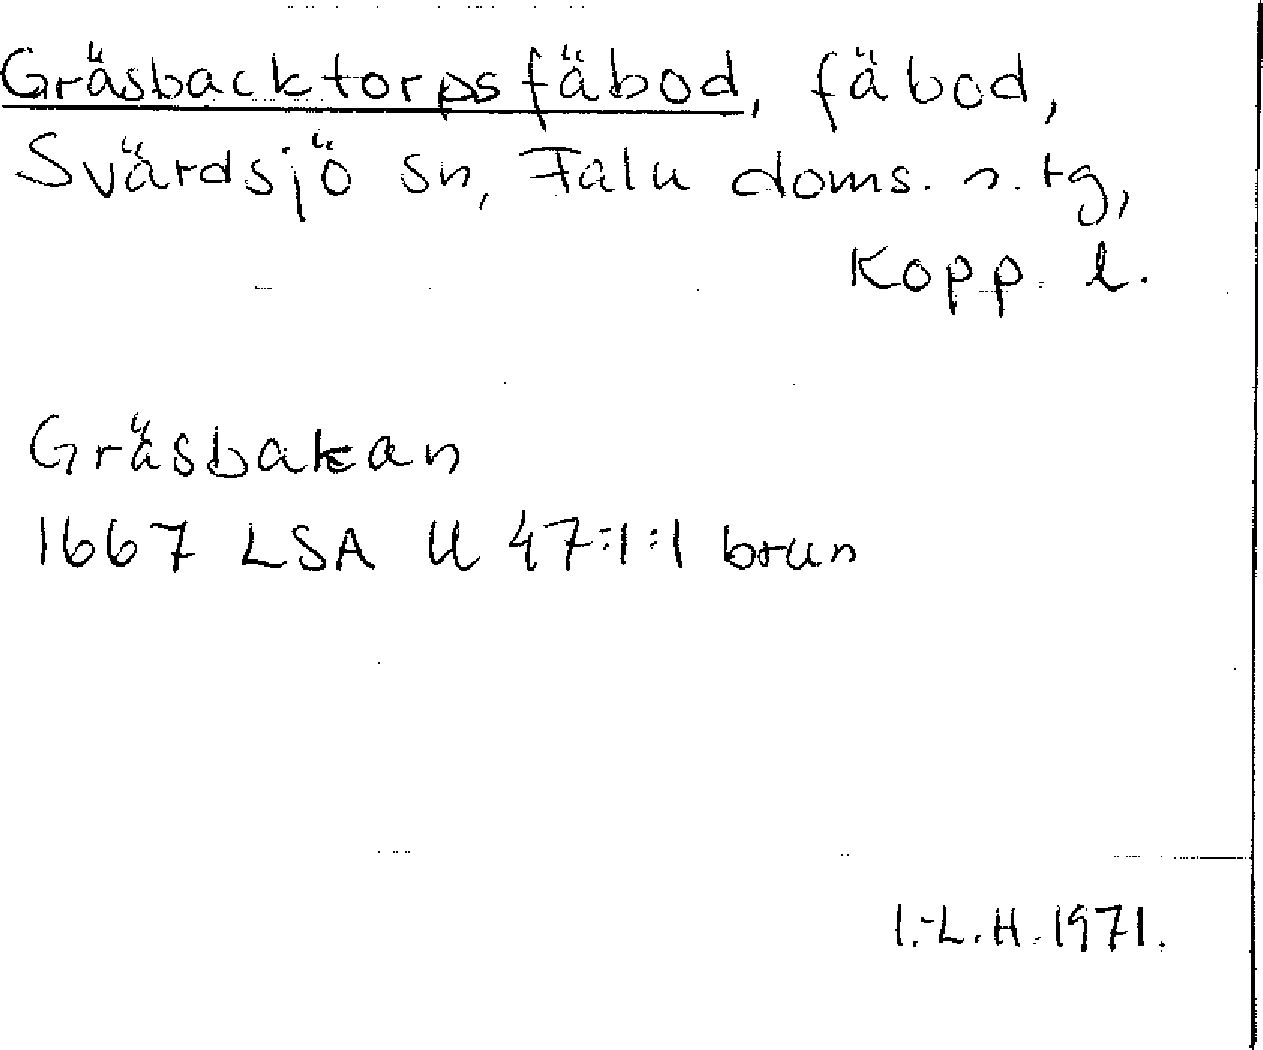 Gräsbacktorpsfäbod, fäbod,
Svärdsjö sn, Falu doms. n. tg,
Kopp. l.
Gräsbakan
1667 LSA U 47:1:1 brun
I.-L.H. 1971.